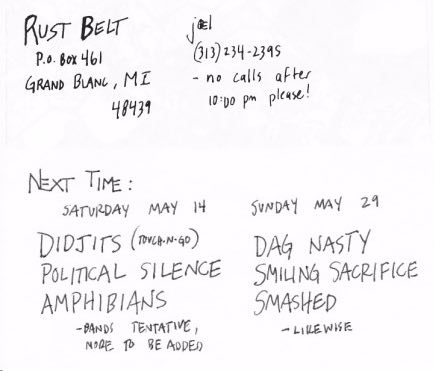 RUST BELT
P.O. BOX 461
GRAND BLANC, MI
48439
joel
(313) 234-2395
- no calls after
10:00 pm please!
NEXT TIME:
SATURDAY MAY 14
DIDJITS (TOUCH-N-GO)
POLITICAL SILENCE
AMPHIBIANS
-BANDS TENTATIVE,
MORE TO BE ADDED
SUNDAY MAY 29
DAG NASTY
SMILING SACRIFICE
SMASHED
- LIKEWISE